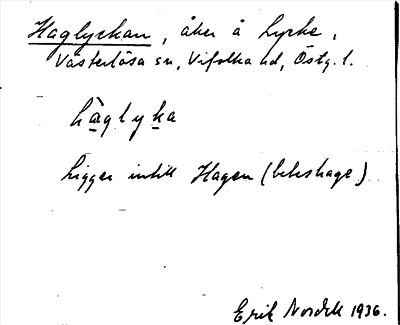 Haglyckan, åker å Lycke,
Västerlösa sn, Vifolka hd, Östg. l.
hàglyka
Ligger intill Hagen (beteshage)
Erik Nordell 1936.